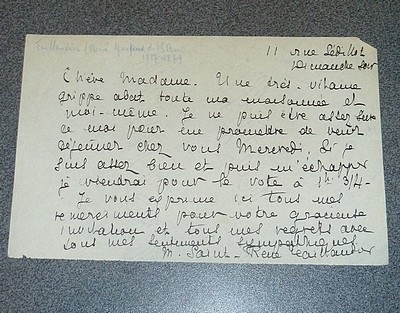 11 rue Sédillot
Dimanche soir
Chère Madame. Une très vilaine
grippe abat toute ma maisonnée et
moi-même. Je ne puis être assez sûre
ce moi pour me promettre de venir
déjeuner chez vous Mercredi. Si je
suis assez bien et puis m'échapper
je viendrai pour le vote à 1h 3/4 -
Je vous exprime ici tous mes
remerciements pour votre gracieuse
invitation et tous mes regrets avec
tous mes sentiments sympathiques
M. Saint-René Taillandier